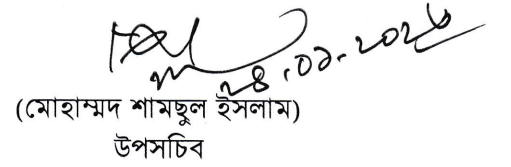 ২৪.০১.২০২৬
(মোহাম্মদ শামছুল ইসলাম)
উপসচিব